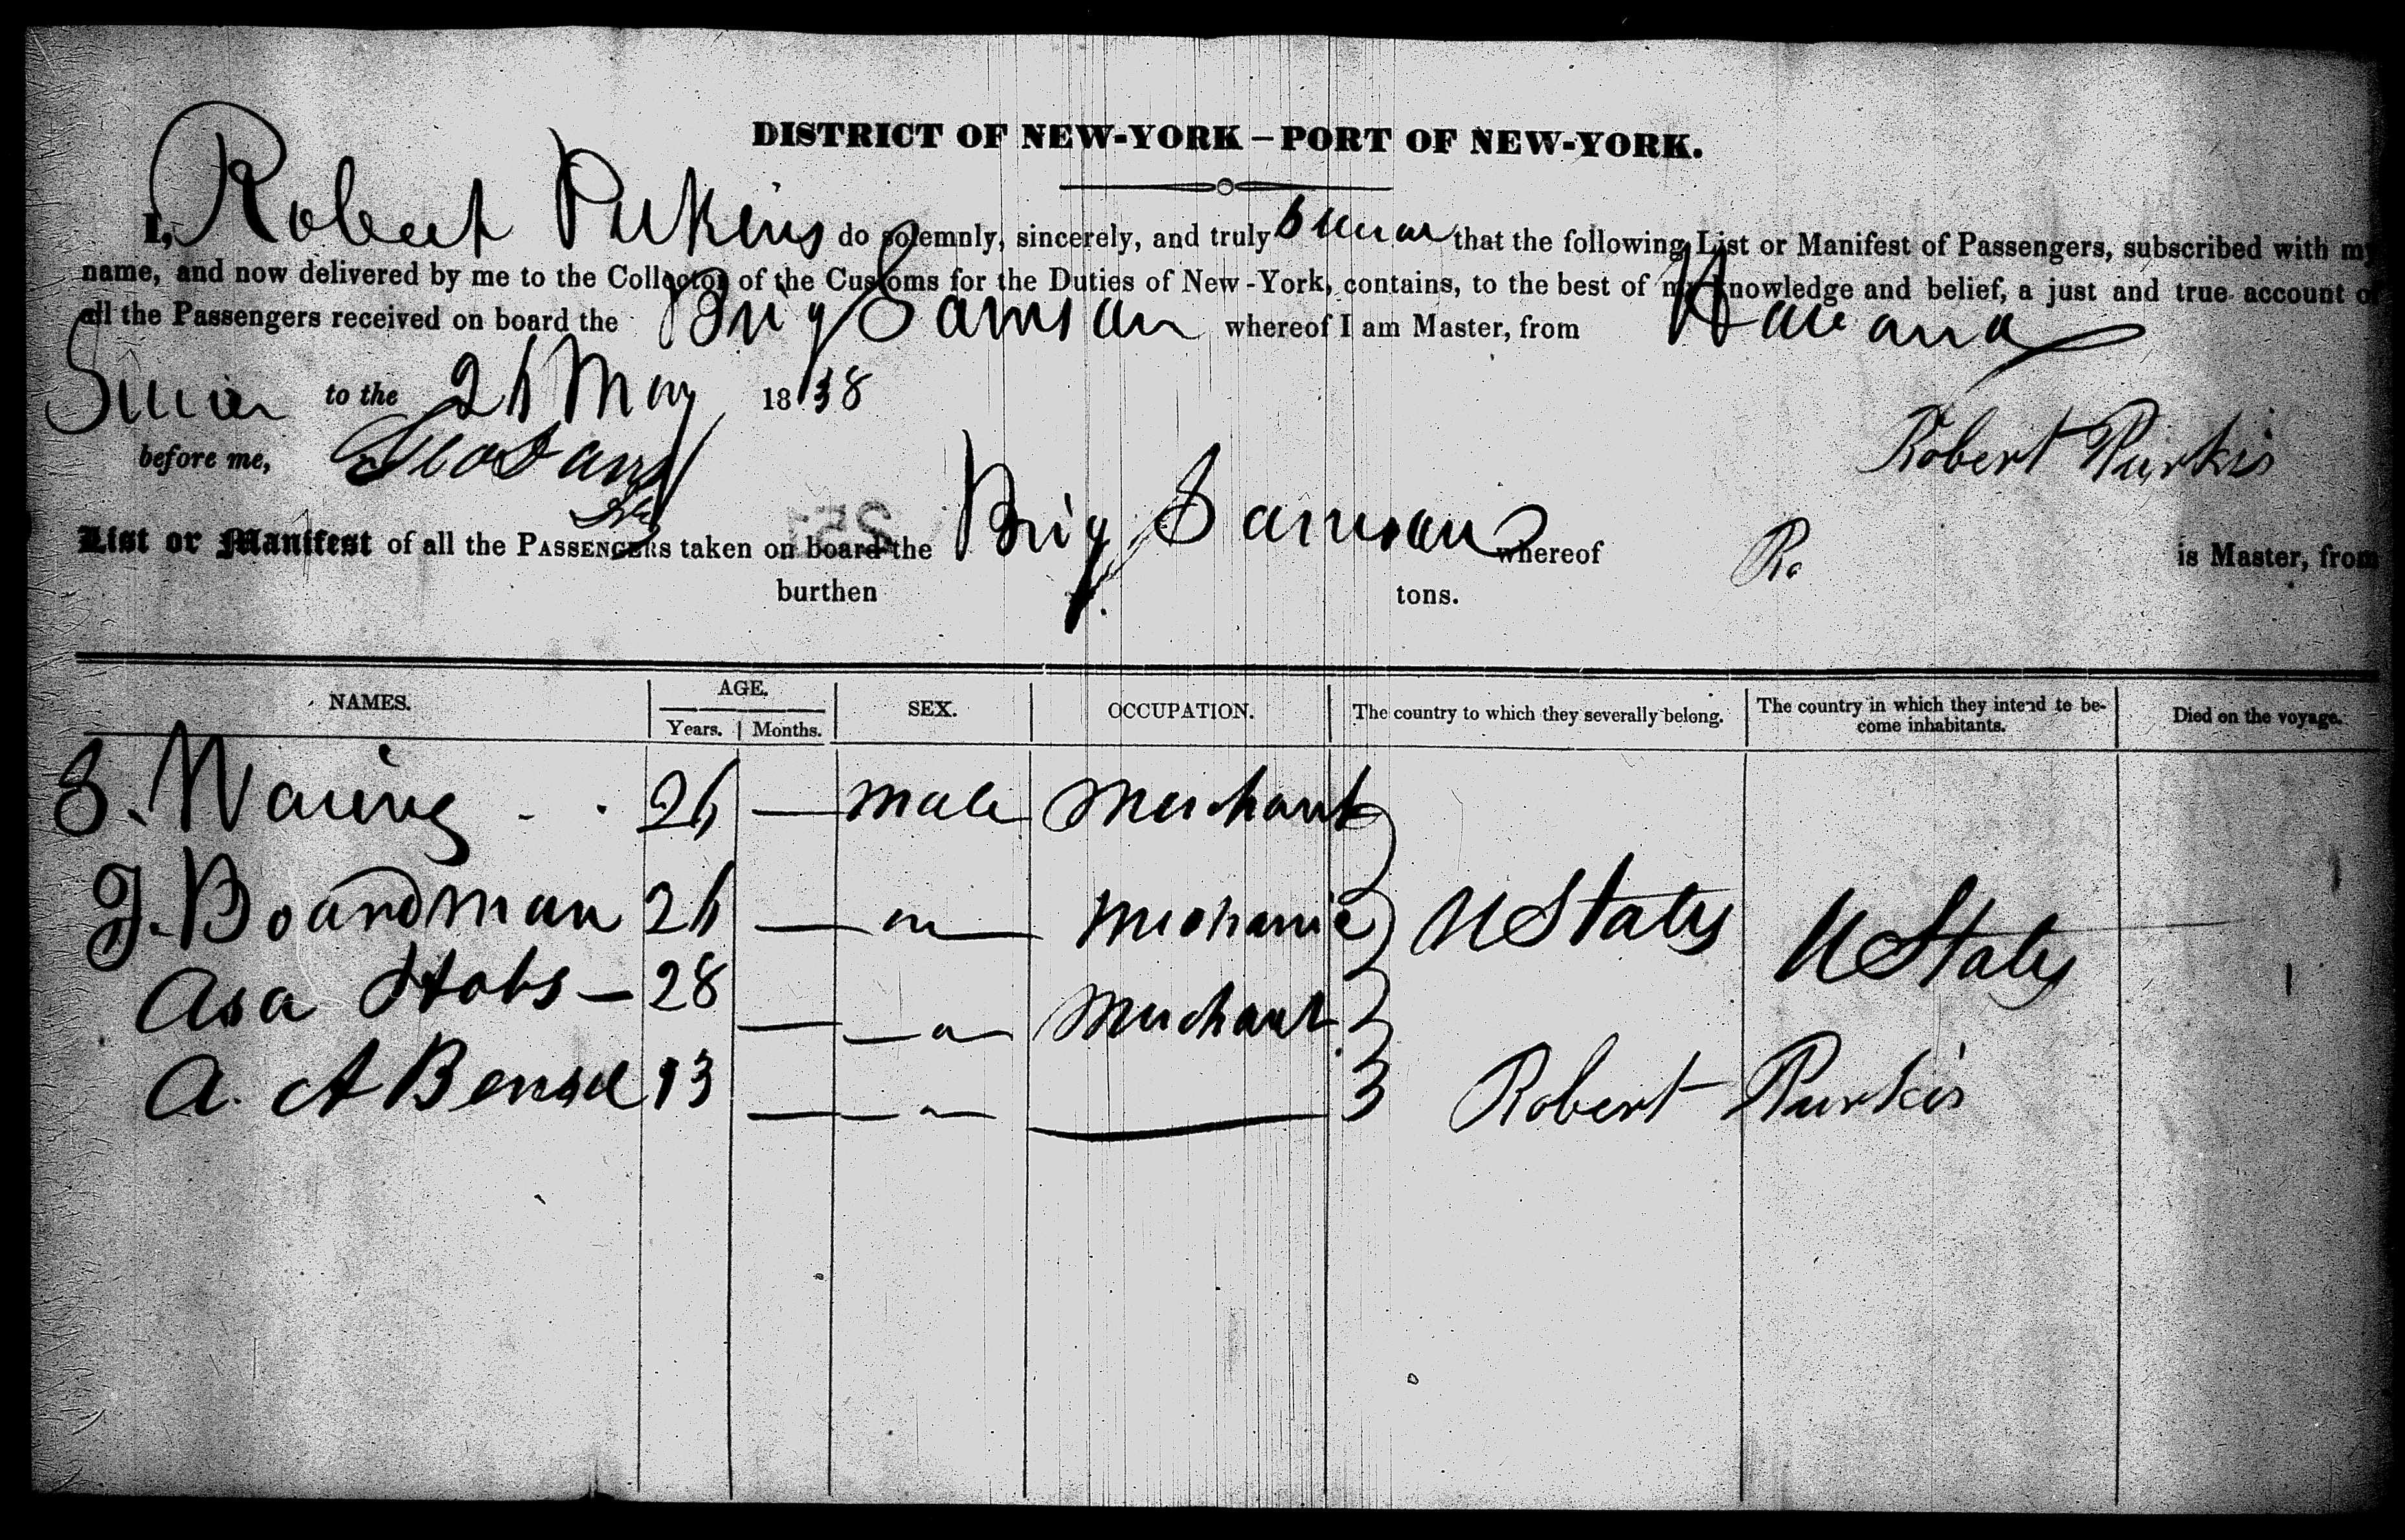 DISTRICT OF NEW-YORK – PORT OF NEW-YORK.
I, Robert Perkins do solemnly, sincerely, and truly swear that the following List or Manifest of Passengers, subscribed with my
name, and now delivered by me to the Collector of the Customs for the Duties of New-York, contains, to the best of my knowledge and belief, a just and true account of
all the Passengers received on board the Brig Samson whereof I am Master, from Havana
Sworn to the 26 May 1838
before me, Robert Purkis
List or Manifest of all the PASSENGERS taken on board the Brig Samson whereof R. is Master, from
burthen tons.
NAMES. AGE. SEX. OCCUPATION. The country to which they severally belong. The country in which they intend to be-
come inhabitants. Died on the voyage.
Years. Months.
S. Waring 26 — male Merchant
J. Boardman 26 — Mechanic U States U States
Asa Hobs — 28 — Merchant
A. A 13 — Robert Purkis